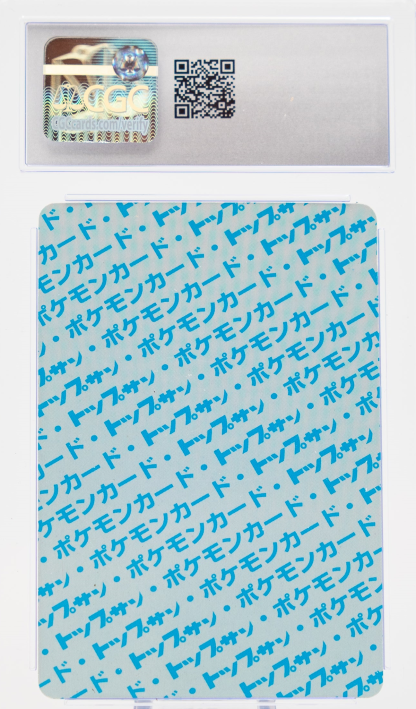 CGC
CGCcards.com/verify
ド・
カード・トップサン
モンカード・トップサン
ポケモンカード・トップサン
・ポケモンカード・トップサン
・ポケモンカード
トップサン・ポケモンカード
トップサン・ポケモンカード
トップサン・ポケモ
ード・トップサン・ポ
ンカード・トップサン
ケモンカード・トップサン
ポケモンカード・トップサン
・ポケモンカード・ト
サン・ポケモンカード
トップサン・ポケモンカード
・トップサン・ポケモン
ド・トップサン・ポケ
トップサン